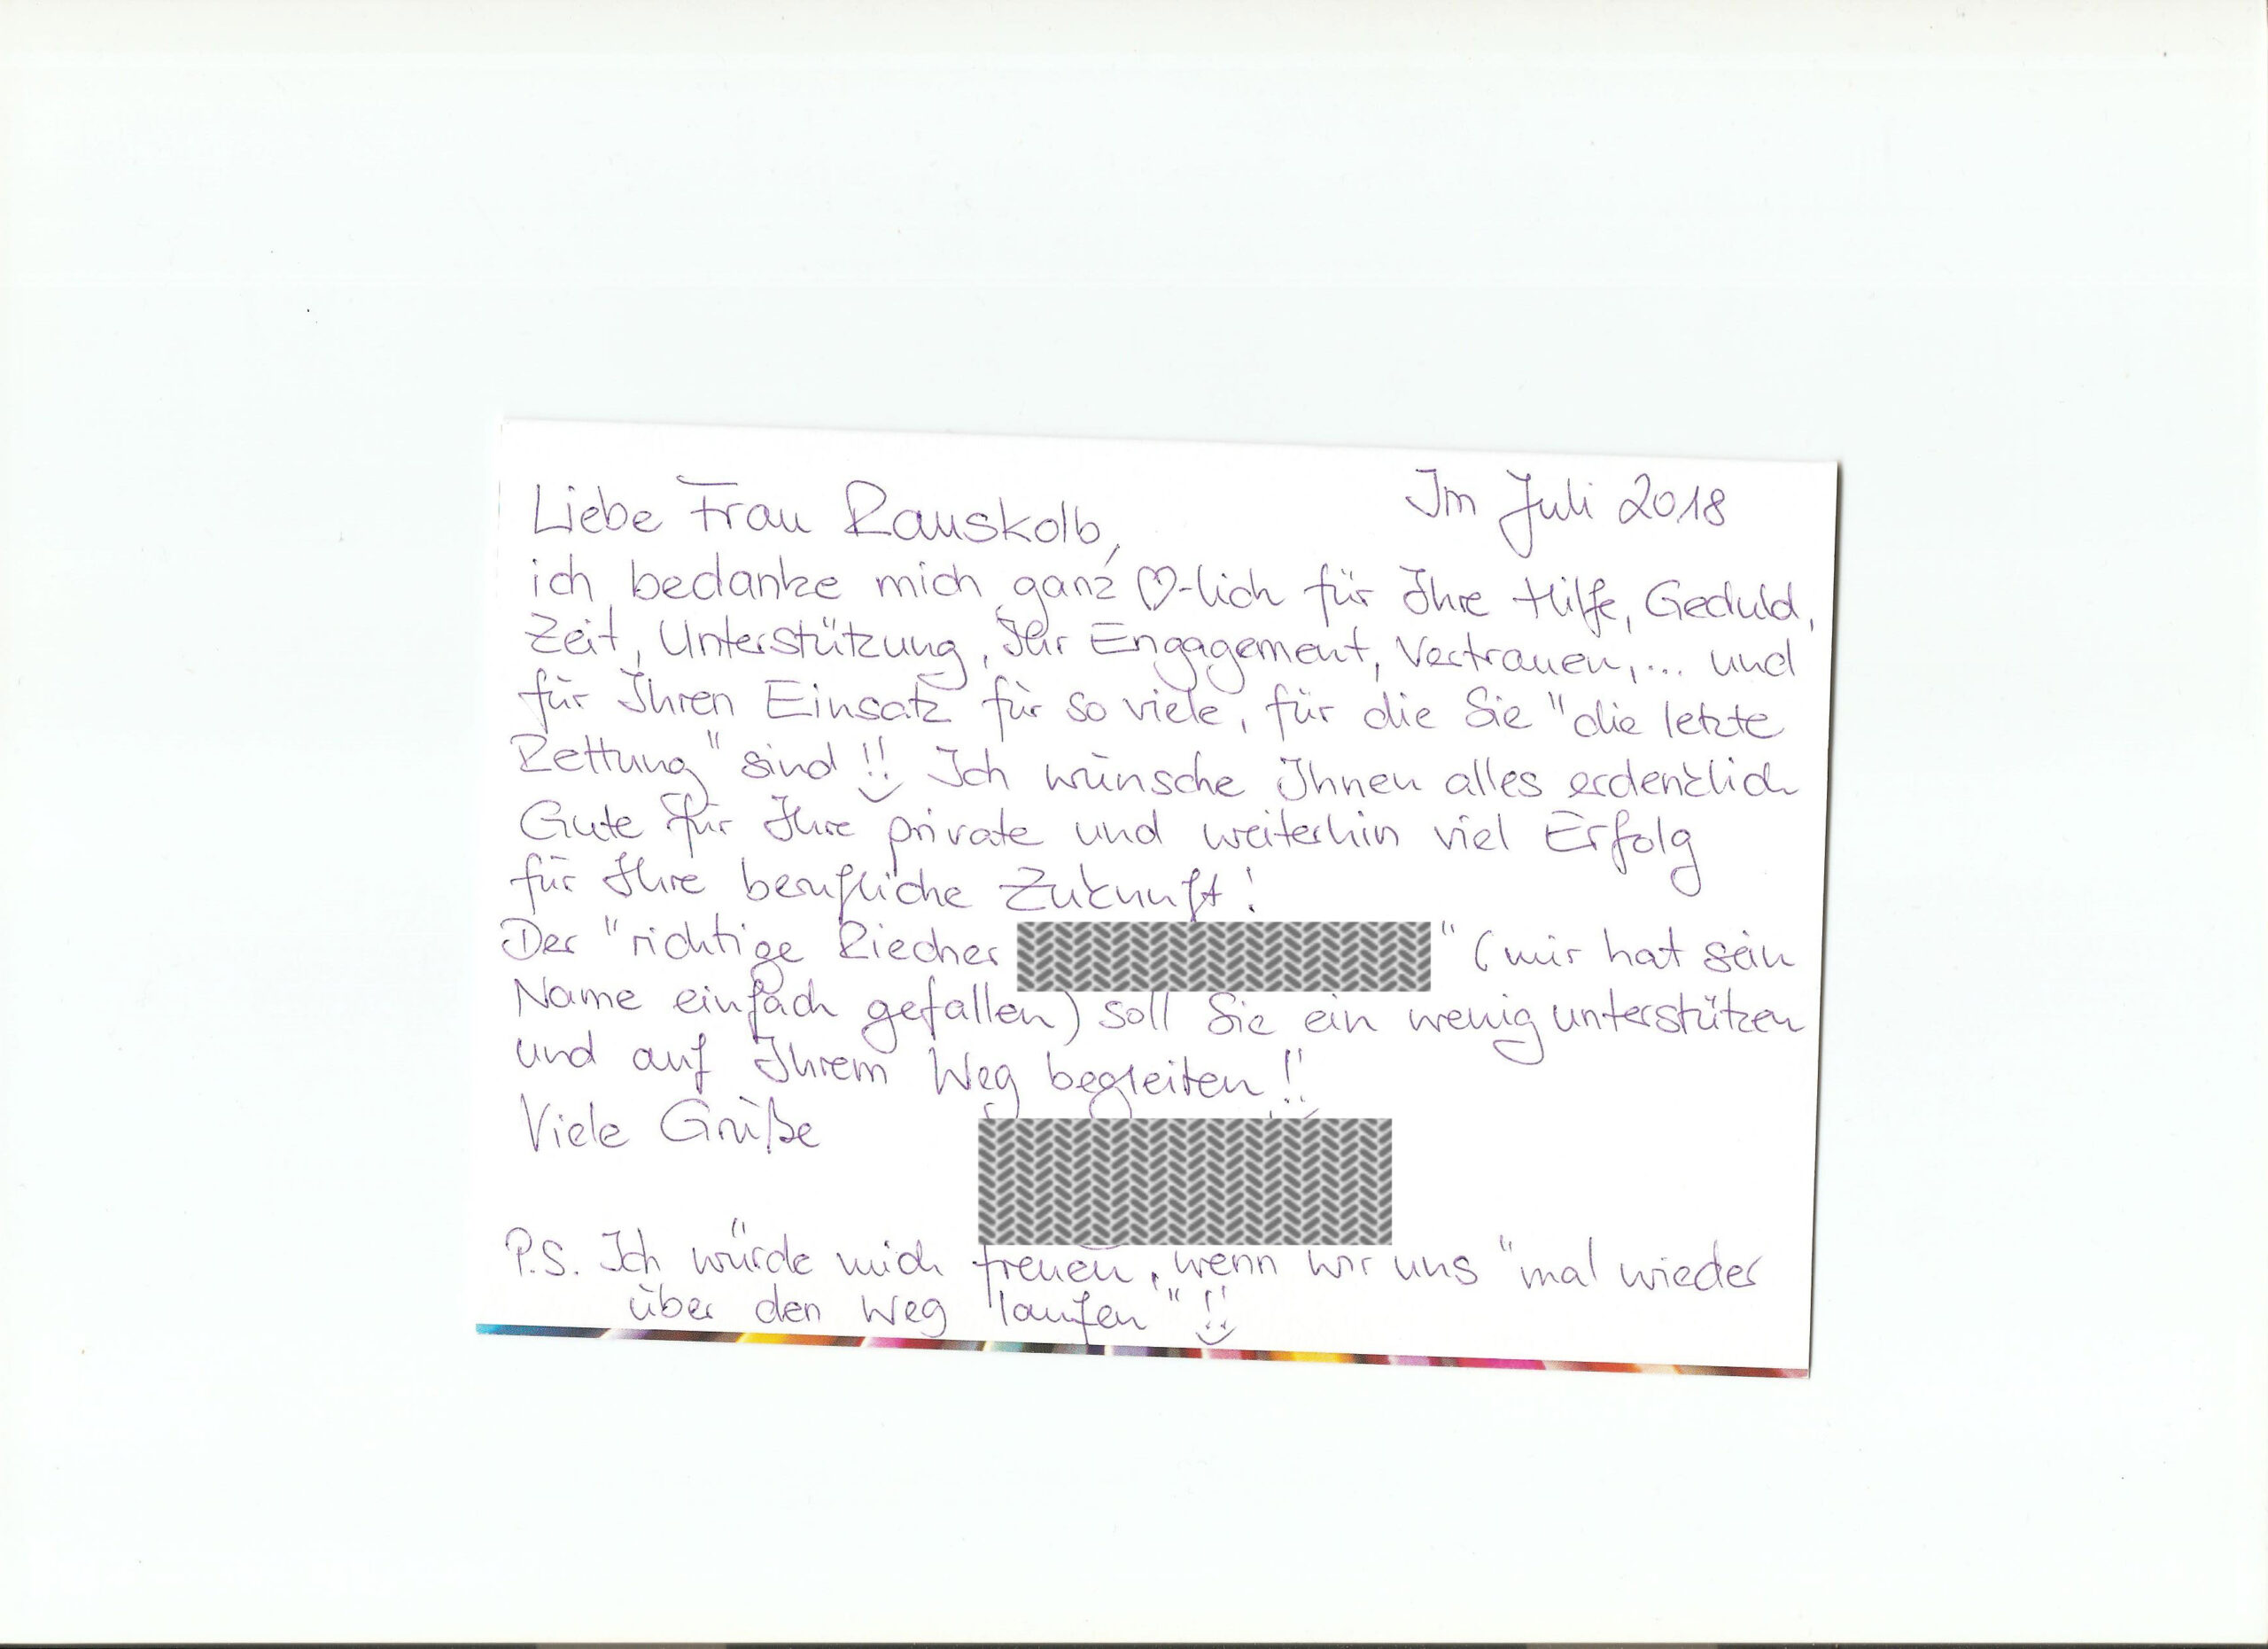 Im Juli 2018
Liebe Frau Rauskolb,
ich bedanke mich ganz ♡-lich für Ihre Hilfe, Geduld,
Zeit, Unterstützung, Ihr Engagement, Vertrauen,... und
für Ihren Einsatz für so viele, für die Sie "die letzte
Rettung" sind!! Ich wünsche Ihnen alles erdenklich
Gute für Ihre private und weiterhin viel Erfolg
für Ihre berufliche Zukunft!
Der "richtige Riecher " (mir hat sein
Name einfach gefallen) soll Sie ein wenig unterstützen
und auf Ihrem Weg begleiten!!
Viele Grüße
P.S. Ich würde mich freuen, wenn wir uns "mal wieder
über den Weg laufen"!!